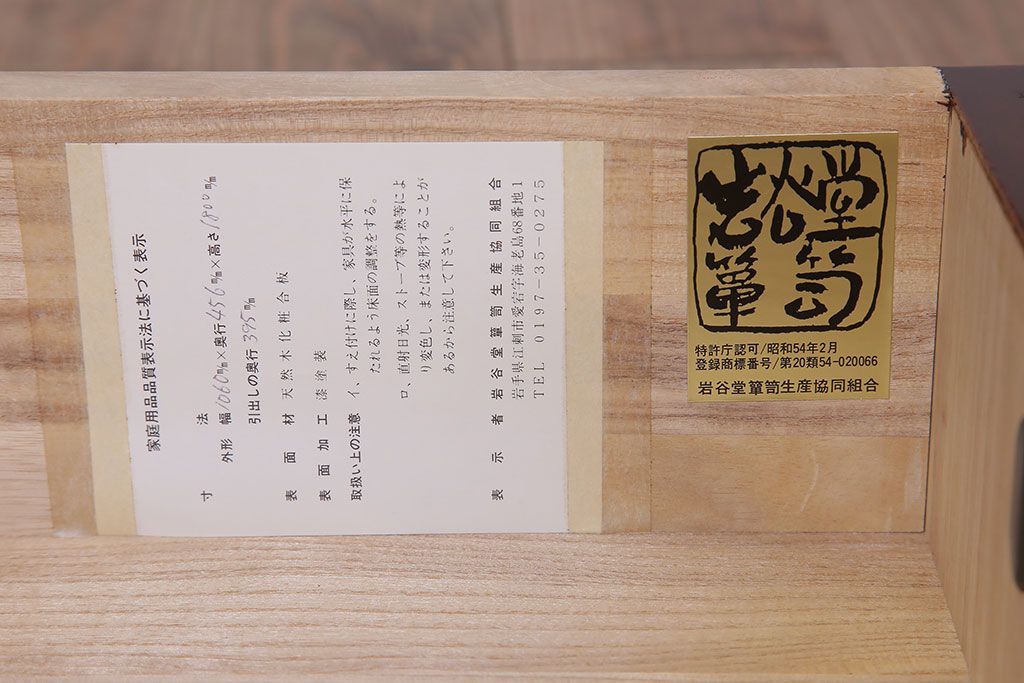 家庭用品品質表示法に基づく表示
寸法
外形 幅1060㎜×奥行456㎜×高さ1800㎜
引出しの奥行395㎜
表面材 天然木化粧合板
表面加工 漆塗装
取扱い上の注意 イ、すえ付けに際し、家具が水平に保
たれるよう床面の調整をする。
ロ、直射日光、ストーブ等の熱等によ
り変色し、または変形することが
あるから注意して下さい。
表示者 岩谷堂簞笥生産協同組合
岩手県江刺市愛宕字海老島68番地1
TEL 0197-35-0275
岩谷堂
簞笥
特許庁認可/昭和54年2月
登録商標番号/第20類54-020066
岩谷堂簞笥生産協同組合